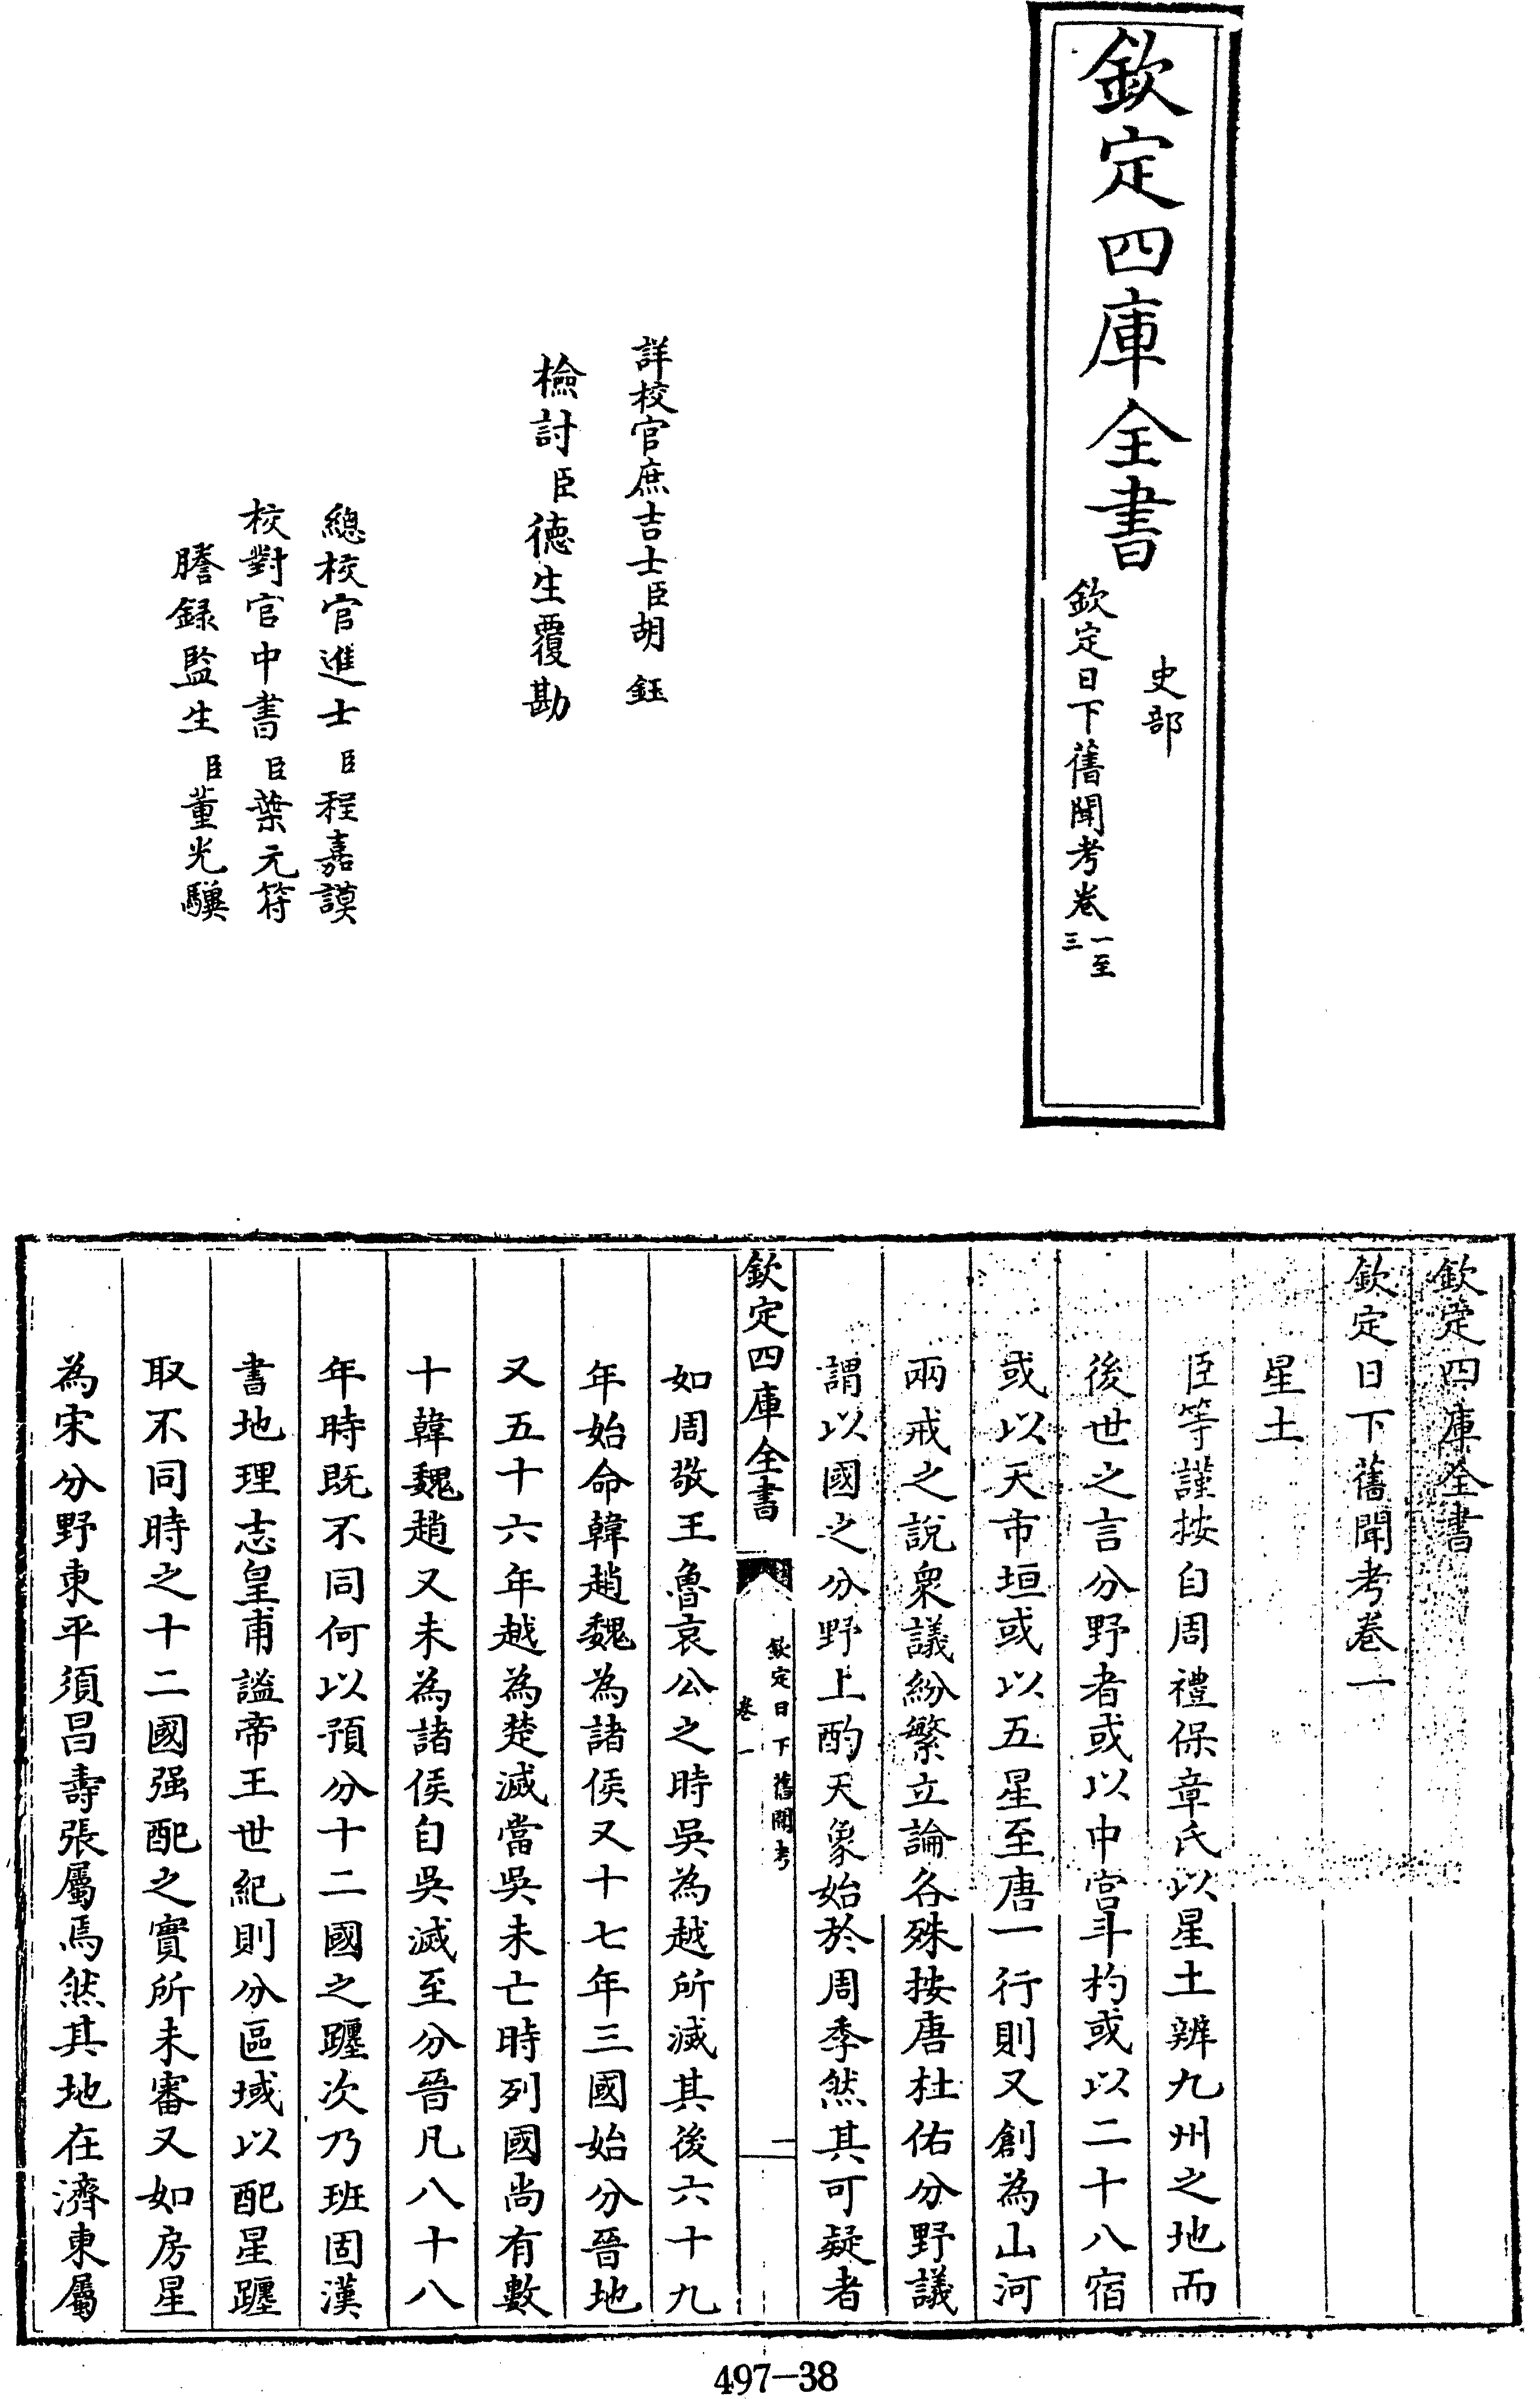 欽定四庫全書
史部
欽定日下舊聞考卷一至三
詳校官庶吉士臣胡鈺
檢討臣德生覆勘
總校官進士臣程嘉謨
校對官中書臣葉元符
謄錄監生臣董光驥
欽定四庫全書
欽定日下舊聞考卷一
星土
臣等謹按自周禮保章氏以星土辨九州之地而
後世之言分野者或以中宮斗杓或以二十八宿
或以天市垣或以五星至唐一行則又創為山河
兩戒之說衆議紛繁立論各殊按唐杜佑分野議
謂以國之分野上酌天象始於周季然其可疑者
欽定四庫全書
欽定日下舊聞考
卷一
一
如周敬王魯哀公之時吳為越所滅其後六十九
年始命韓趙魏為諸侯又十七年三國始分晉地
又五十六年越為楚滅當吳未亡時列國尚有數
十韓魏趙又未為諸侯自吳滅至分晉凡八十八
年時既不同何以預分十二國之躔次乃班固漢
書地理志皇甫謐帝王世紀則分區域以配星躔
取不同時之十二國强配之實所未審又如房星
為宋分野東平須昌壽張屬焉然其地在濟東屬
497-38